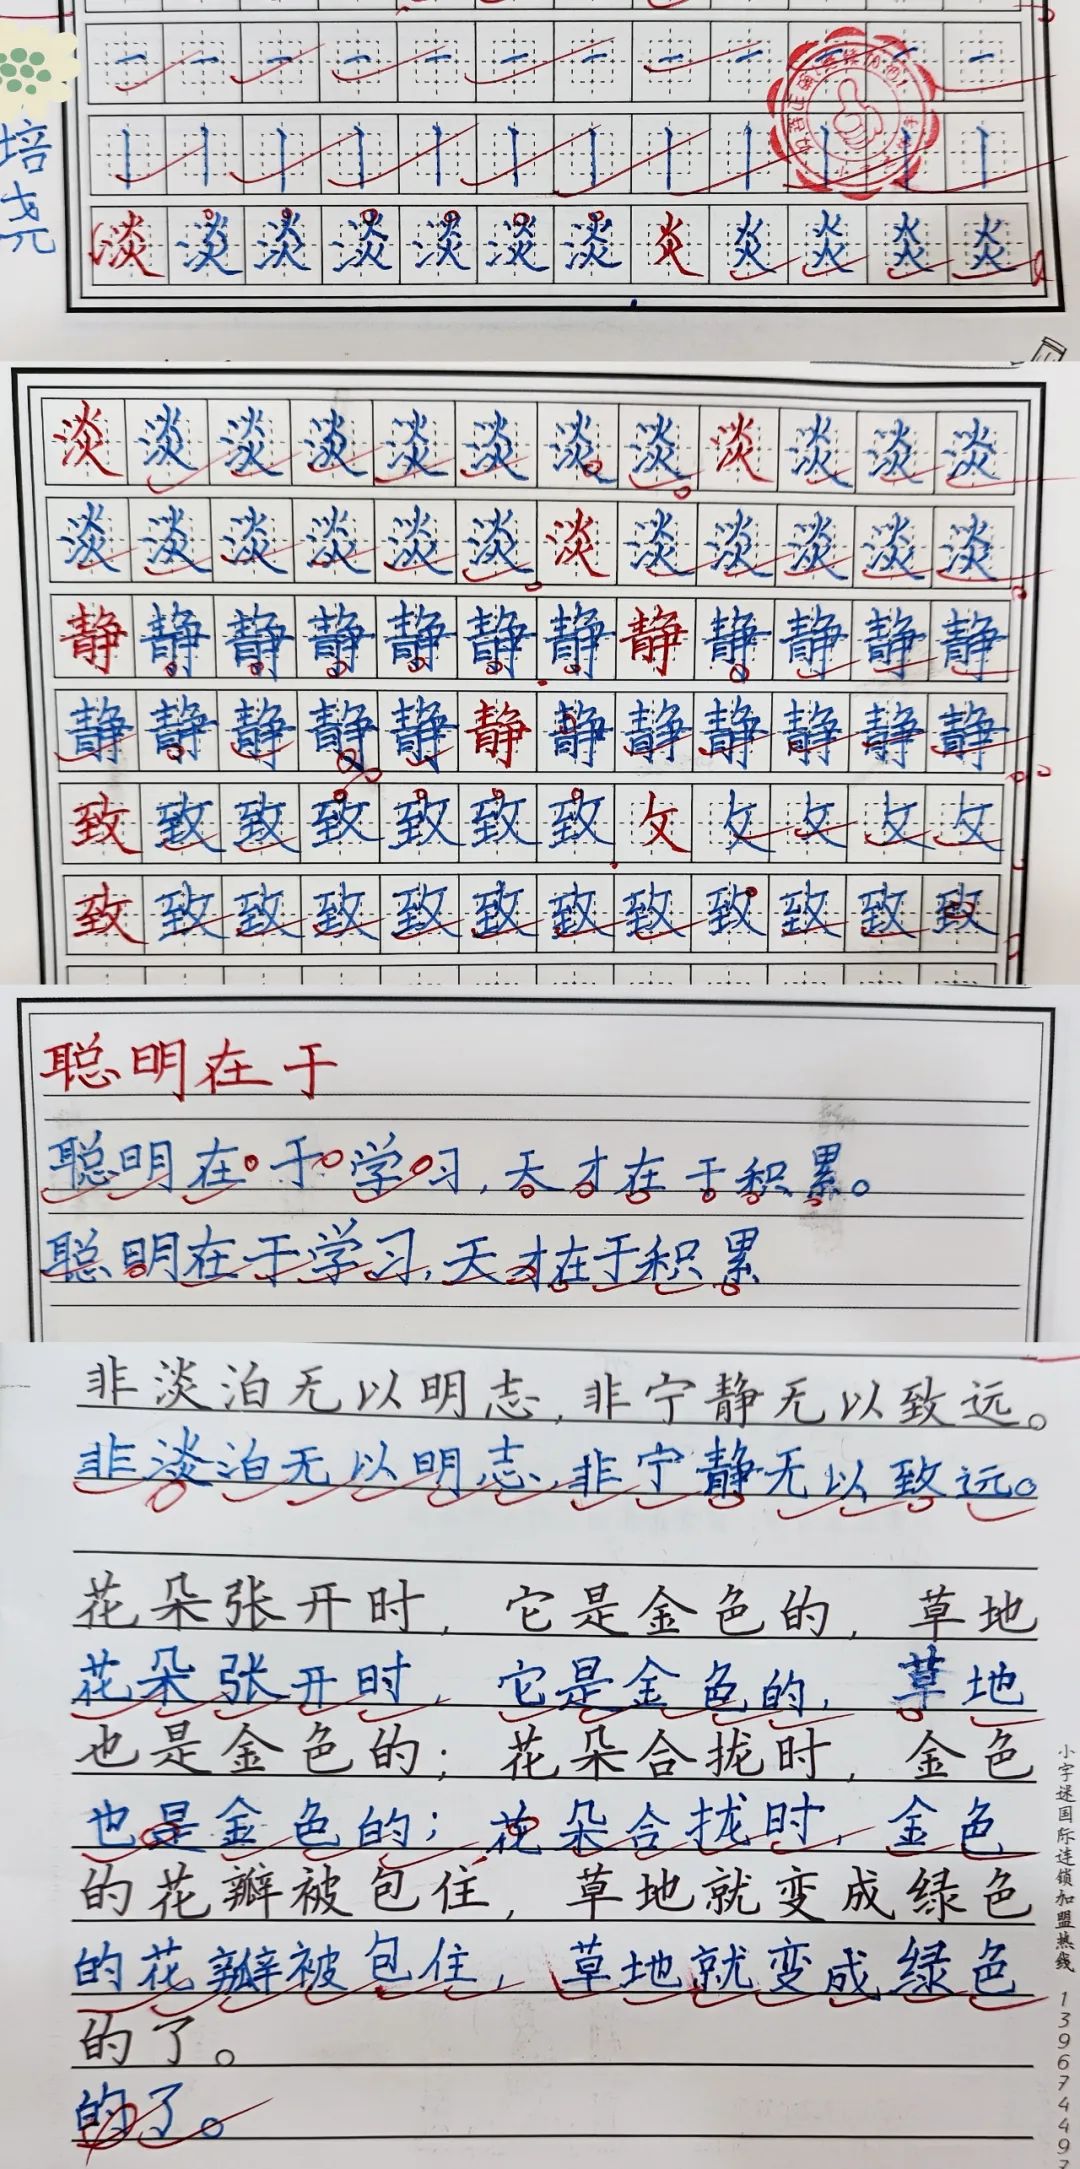 培尧
一 一 一 一 一 一 一 一 一 一 一 一
丨 丨 丨 丨 丨 丨 丨 丨 丨 丨 丨 丨
淡 淡 淡 淡 淡 淡 淡 炎 炎 炎 炎 炎
淡 淡 淡 淡 淡 淡 淡 淡 淡 淡 淡 淡
淡 淡 淡 淡 淡 淡 淡 淡 淡 淡 淡 淡
静 静 静 静 静 静 静 静 静 静 静 静
静 静 静 静 静 静 静 静 静 静 静 静
致 致 致 致 致 致 致 攵 攵 攵 攵 攵
致 致 致 致 致 致 致 致 致 致 致 致
聪明在于
聪明在于学习,天才在于积累。
聪明在于学习,天才在于积累
非淡泊无以明志,非宁静无以致远。
非淡泊无以明志,非宁静无以致远。
花朵张开时,它是金色的,草地
花朵张开时,它是金色的,草地
也是金色的;花朵合拢时,金色
也是金色的;花朵合拢时,金色
的花瓣被包住,草地就变成绿色
的花瓣被包住,草地就变成绿色
的了。
的了。
小字迷国际连锁加盟热线 1396744497